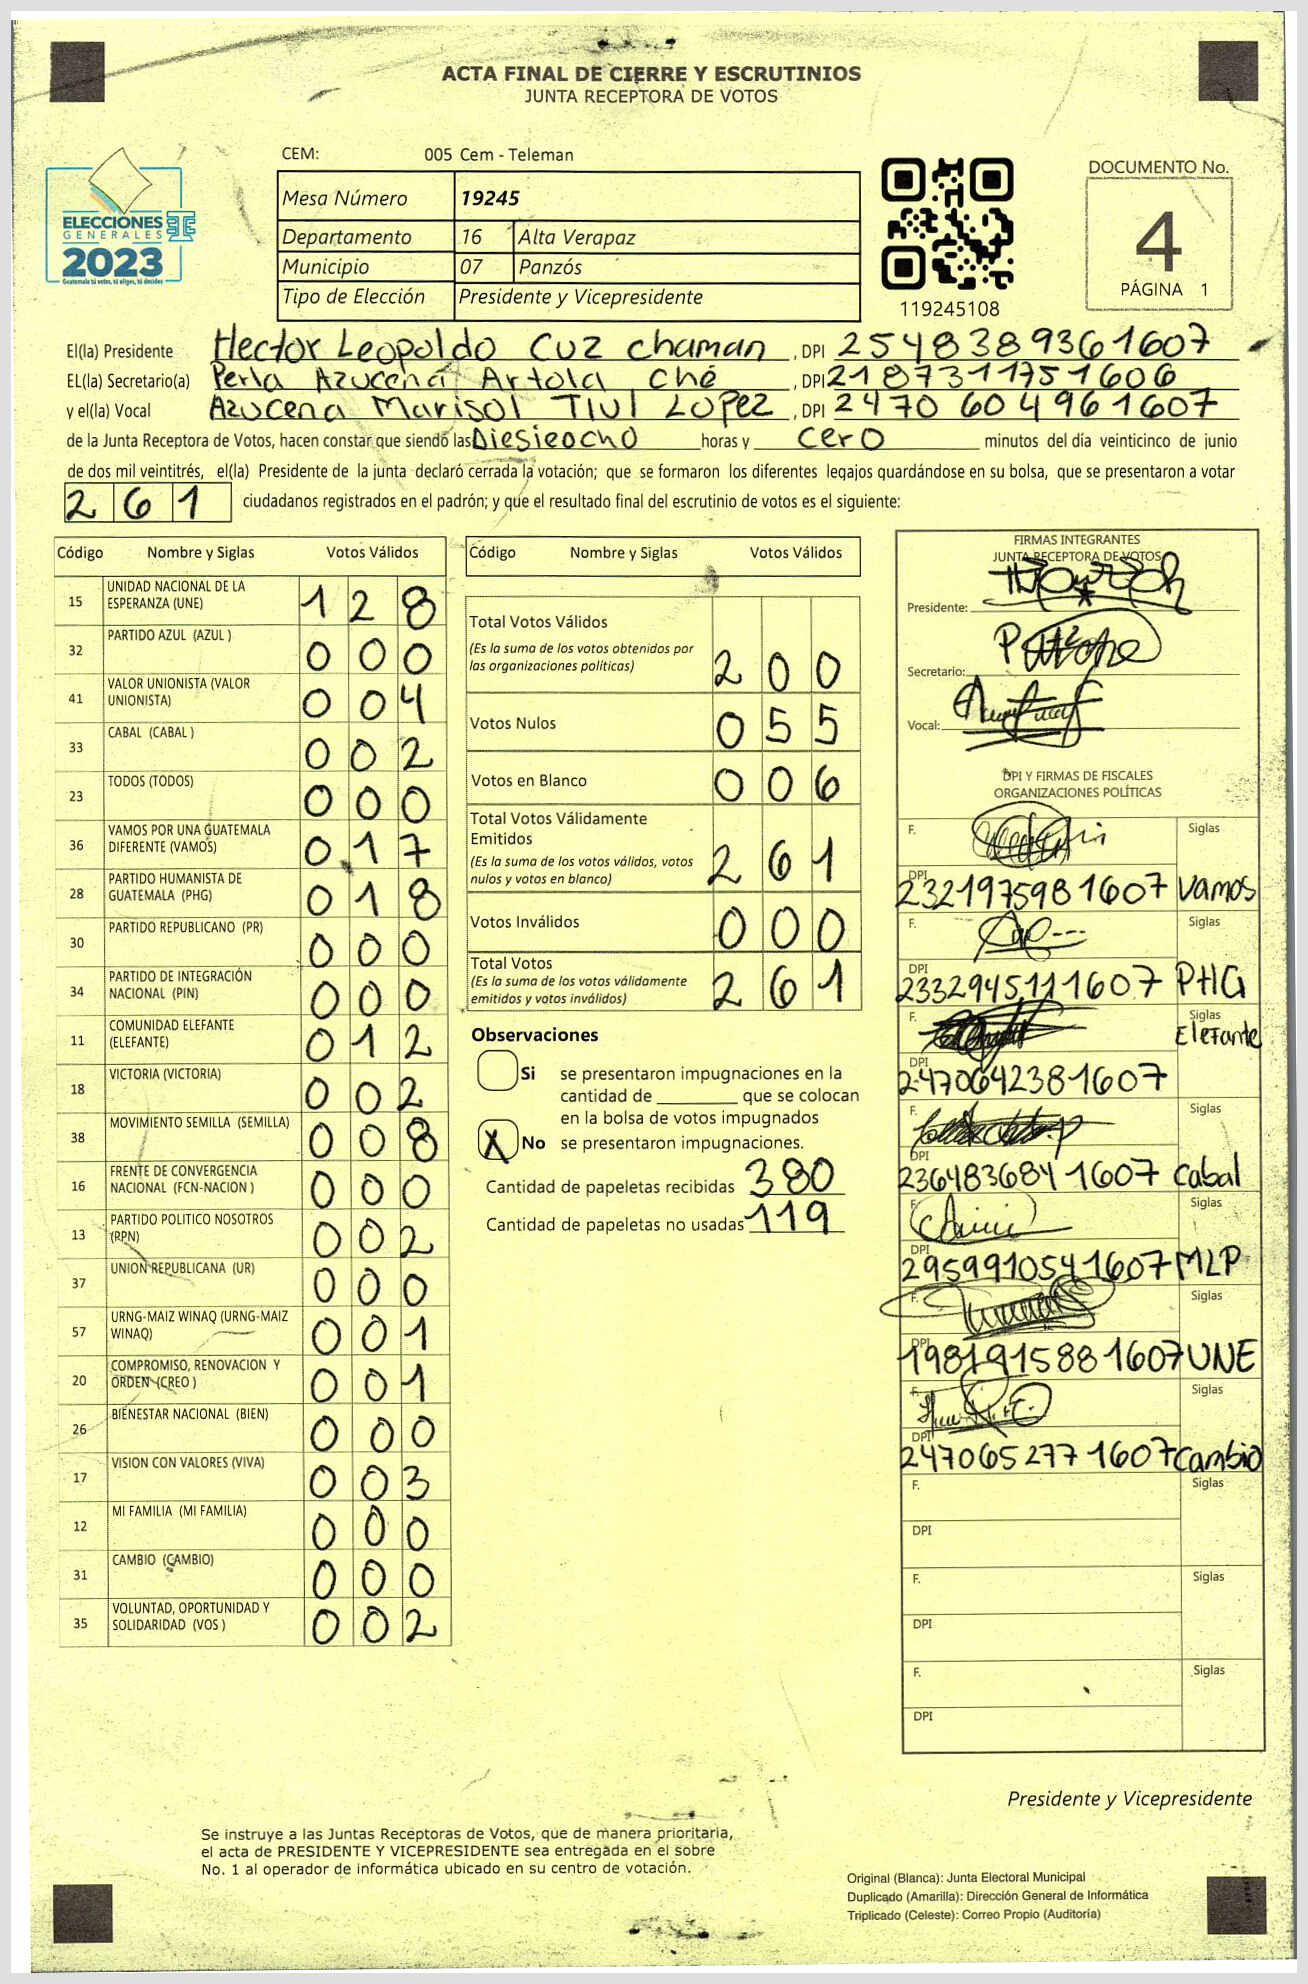 ACTA FINAL DE CIERRE Y ESCRUTINIOS
JUNTA RECEPTORA DE VOTOS
CEM: 005 Cem - Teleman
ELECCIONES
GENERALES
2023
Guatemala tú votes, tú eliges, tú decides
Mesa Número 19245
Departamento 16 Alta Verapaz
Municipio 07 Panzós
Tipo de Elección Presidente y Vicepresidente
119245108
DOCUMENTO No.
4
PÁGINA 1
El(la) Presidente Hector Leopoldo Cuz Chaman , DPI 2548389361607
EL(la) Secretario(a) Perla Azucena Artola Ché , DPI 2187311751606
y el(la) Vocal Azucena Marisol Tiul Lopez , DPI 2470604961607
de la Junta Receptora de Votos, hacen constar que siendo las Diesieocho horas y cero minutos del día veinticinco de junio
de dos mil veintitrés, el(la) Presidente de la junta declaró cerrada la votación; que se formaron los diferentes legajos quardándose en su bolsa, que se presentaron a votar
261 ciudadanos registrados en el padrón; y que el resultado final del escrutinio de votos es el siguiente:
Código Nombre y Siglas Votos Válidos
15 UNIDAD NACIONAL DE LA ESPERANZA (UNE) 1 2 8
32 PARTIDO AZUL (AZUL ) 0 0 0
41 VALOR UNIONISTA (VALOR UNIONISTA) 0 0 4
33 CABAL (CABAL ) 0 0 2
23 TODOS (TODOS) 0 0 0
36 VAMOS POR UNA GUATEMALA DIFERENTE (VAMOS) 0 1 7
28 PARTIDO HUMANISTA DE GUATEMALA (PHG) 0 1 8
30 PARTIDO REPUBLICANO (PR) 0 0 0
34 PARTIDO DE INTEGRACIÓN NACIONAL (PIN) 0 0 0
11 COMUNIDAD ELEFANTE (ELEFANTE) 0 1 2
18 VICTORIA (VICTORIA) 0 0 2
38 MOVIMIENTO SEMILLA (SEMILLA) 0 0 8
16 FRENTE DE CONVERGENCIA NACIONAL (FCN-NACION ) 0 0 0
13 PARTIDO POLITICO NOSOTROS (RPN) 0 0 2
37 UNION REPUBLICANA (UR) 0 0 0
57 URNG-MAIZ WINAQ (URNG-MAIZ WINAQ) 0 0 1
20 COMPROMISO, RENOVACION Y ORDEN (CREO ) 0 0 1
26 BIENESTAR NACIONAL (BIEN) 0 0 0
17 VISION CON VALORES (VIVA) 0 0 3
12 MI FAMILIA (MI FAMILIA) 0 0 0
31 CAMBIO (CAMBIO) 0 0 0
35 VOLUNTAD, OPORTUNIDAD Y SOLIDARIDAD (VOS ) 0 0 2
Código Nombre y Siglas Votos Válidos
Total Votos Válidos
(Es la suma de los votos obtenidos por
las organizaciones políticas) 2 0 0
Votos Nulos 0 5 5
Votos en Blanco 0 0 6
Total Votos Válidamente
Emitidos
(Es la suma de los votos válidos, votos
nulos y votos en blanco) 2 6 1
Votos Inválidos 0 0 0
Total Votos
(Es la suma de los votos válidamente
emitidos y votos inválidos) 2 6 1
Observaciones
Si se presentaron impugnaciones en la
cantidad de ________ que se colocan
en la bolsa de votos impugnados
X No se presentaron impugnaciones.
Cantidad de papeletas recibidas 380
Cantidad de papeletas no usadas 119
FIRMAS INTEGRANTES
JUNTA RECEPTORA DE VOTOS
Presidente:
Secretario:
Vocal:
DPI Y FIRMAS DE FISCALES
ORGANIZACIONES POLÍTICAS
F. Siglas
DPI 2321975981607 Vamos
F. Siglas
DPI 2332945111607 PHG
F. Siglas Elefante
DPI 2470642381607
F. Siglas
DPI 2364836841607 Cabal
F. Siglas
DPI 2959910541607 MLP
F. Siglas
DPI 1981915881607 UNE
F. Siglas
DPI 2470652771607 Cambio
F. Siglas
DPI
F. Siglas
DPI
F. Siglas
DPI
Presidente y Vicepresidente
Se instruye a las Juntas Receptoras de Votos, que de manera prioritaria,
el acta de PRESIDENTE Y VICEPRESIDENTE sea entregada en el sobre
No. 1 al operador de informática ubicado en su centro de votación.
Original (Blanca): Junta Electoral Municipal
Duplicado (Amarilla): Dirección General de Informática
Triplicado (Celeste): Correo Propio (Auditoría)